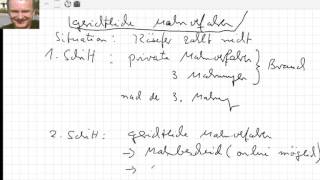 gerichtliche Mahnverfahren
Situation: Käufer zahlt nicht
1. Schritt: private Mahnverfahren
3 Mahnungen } Brauch
nach der 3. Mahnung
2. Schritt: gerichtliche Mahnverfahren
→ Mahnbescheid (online möglich)
→